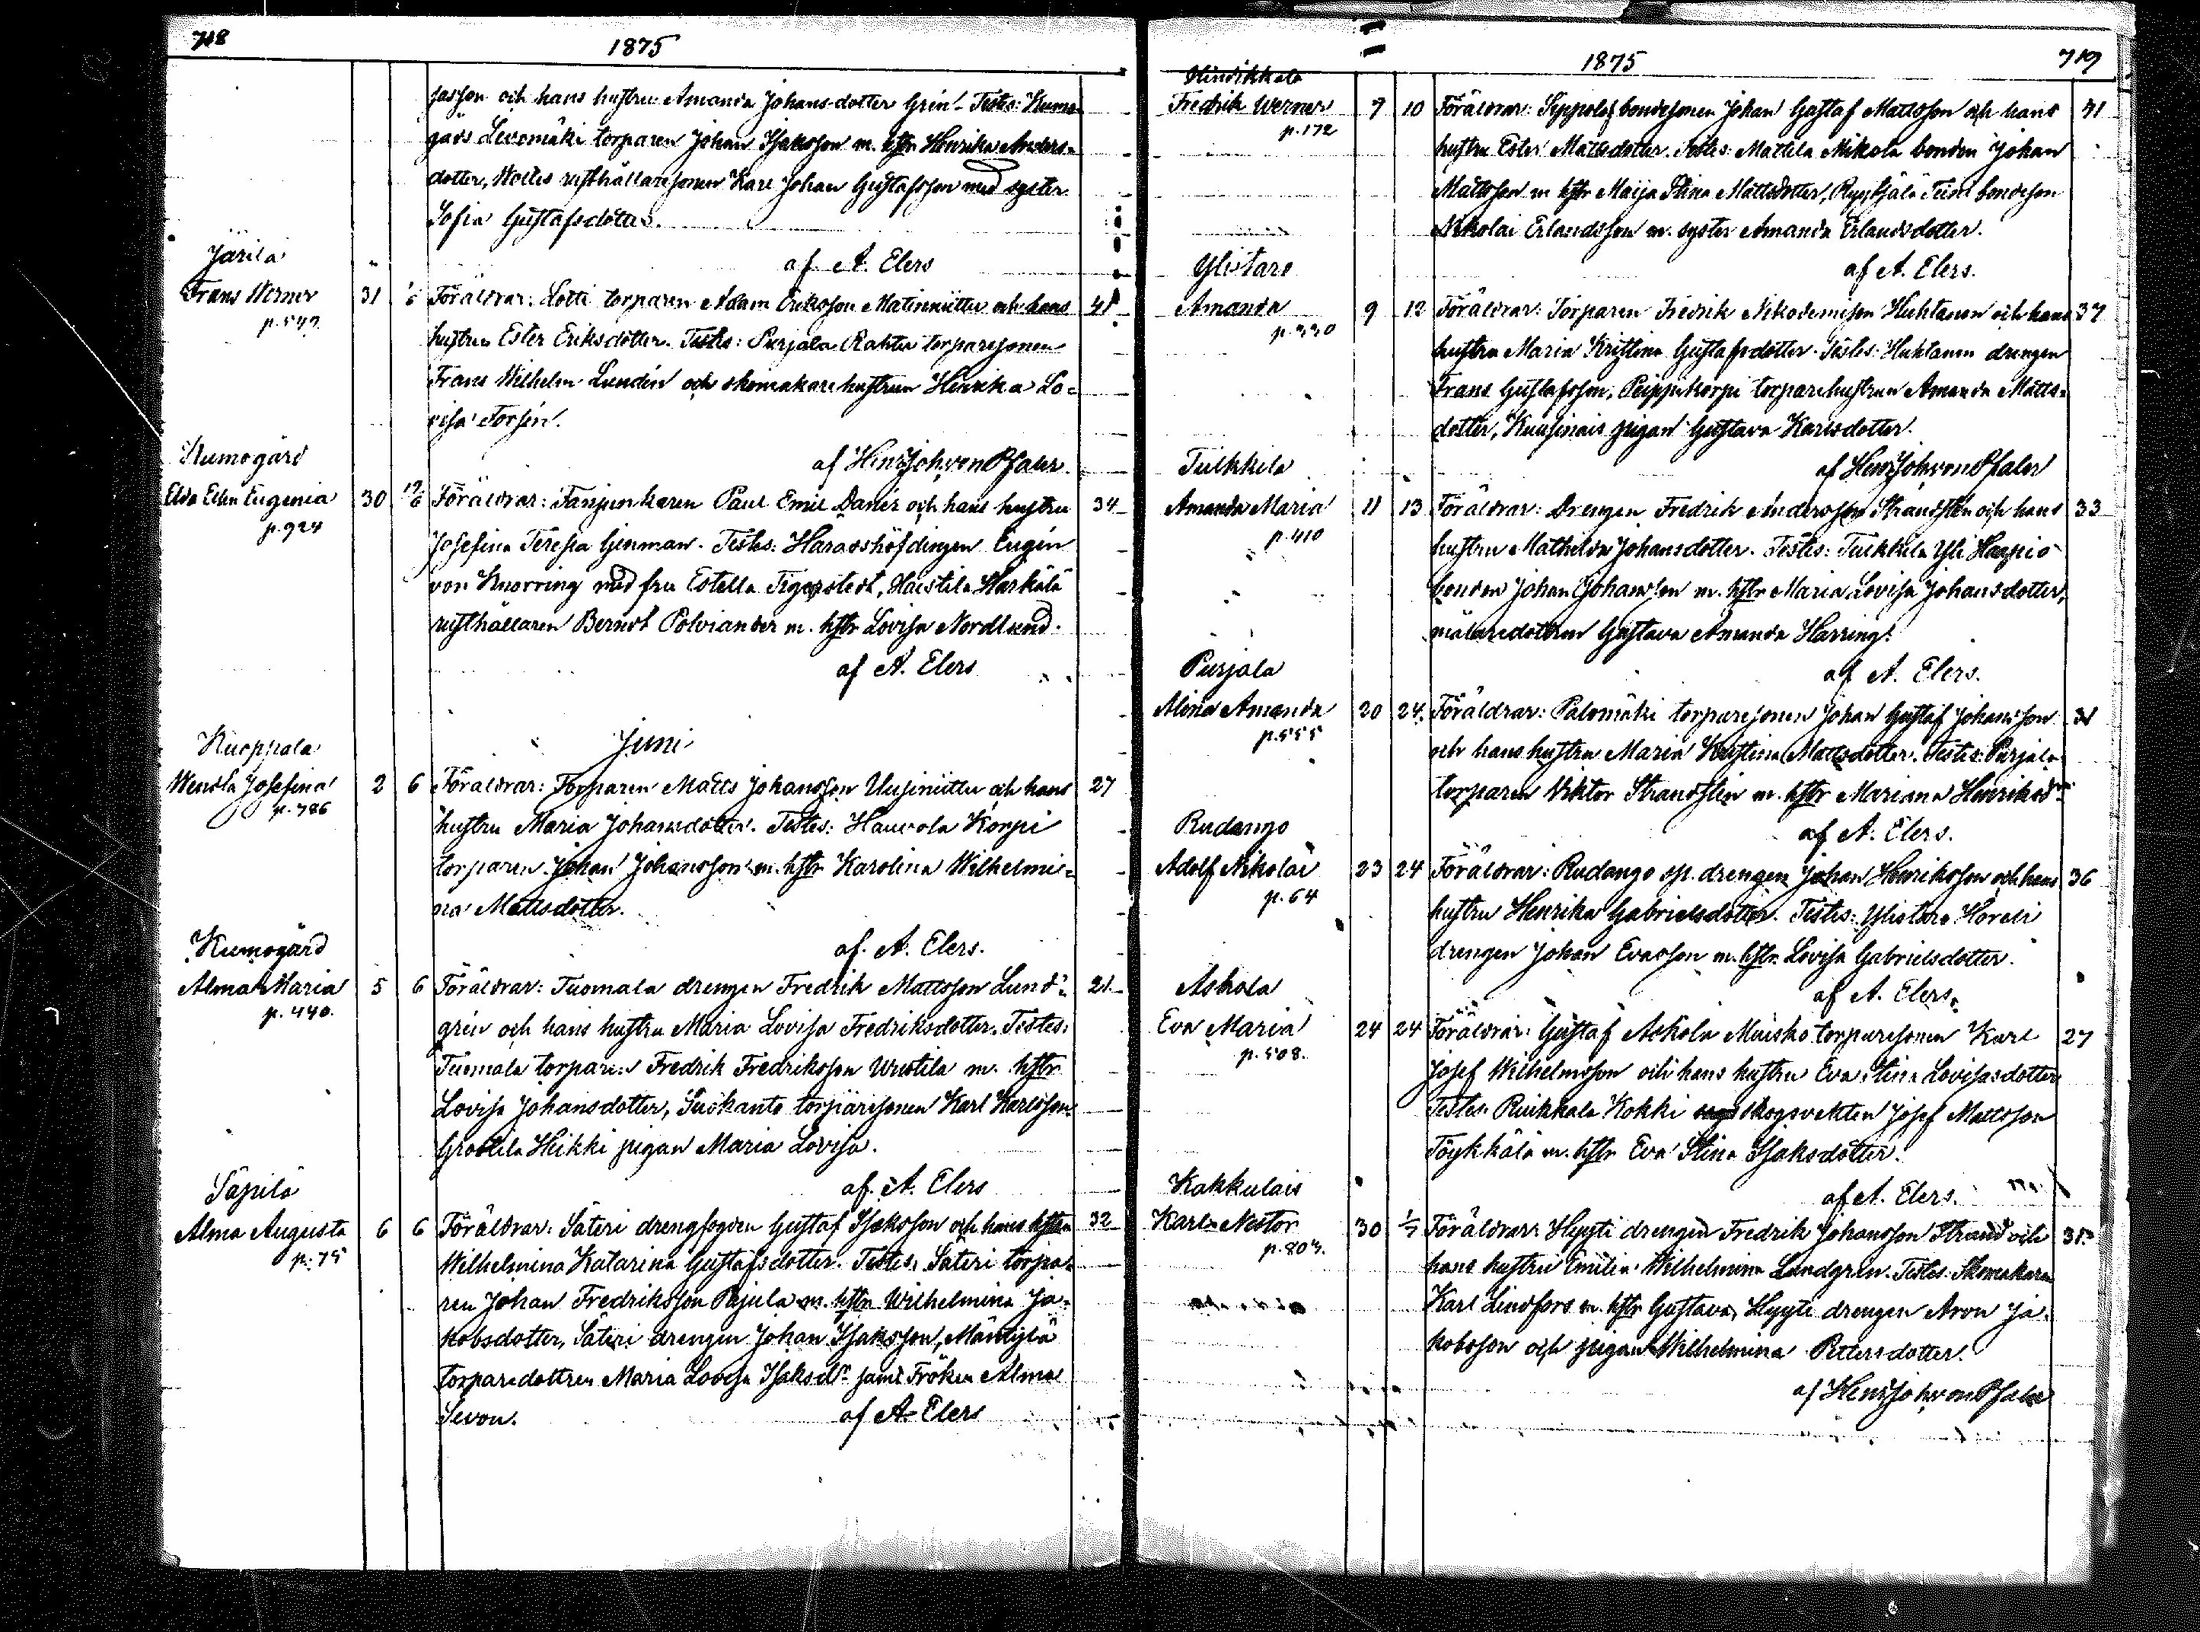 718
1875
sasson och hans hustru Amanda Johansdotter Grén. Testes: Kumo-
gårds Levomäki torparen Johan Isaksson m. hstr Henrika Anders-
dotter, rusthållaresonen Karl Johan Gustafsson med syster
Sofia Gustafsdotter.
af A. Elers
Järilä
Frans Werner 31 Föräldrar: Lotti torparen Adam Eriksson Matinniittu och hans 41
p. 547
hustru Ester Eriksdotter. Testes: Purjala Rahtu torparesonen
Frans Wilhelm Lundén och skomakare hustrun Henrika Lo-
visa Forsén.
af Henr Joh von Pfaler
Kumogård
Elda Elin Eugenia 30 Föräldrar: Fanjunkaren Paul Emil Danér och hans hustru 34
p. 924
Josefina Teresia Ginman. Testes: Häradshöfdingen Eugén
von Knorring med fru Estella Tigerstedt, Haistila Härkälä
rusthållaren Berndt Polviander m. hstr Lovisa Nordlund.
af A. Elers
Juni
Kuoppala
Wendla Josefina 2 6 Föräldrar: Torparen Matts Johansson Uusiniittu och hans 27
p. 786
hustru Maria Johansdotter. Testes: Haurola Korpi
torparen Johan Johansson m. hstr Karolina Wilhelmi-
na Mattsdotter.
af A. Elers.
Kumogård
Alma Maria 5 6 Föräldrar: Tuomala drengen Fredrik Mattsson Lund- 21
p. 440.
grén och hans hustru Maria Lovisa Fredriksdotter. Testes:
Tuomala torparen Fredrik Fredriksson m. hstr
Lovisa Johansdotter, Suokanto torparesonen Karl Karlsson
Grootila Heikki pigan Maria Lovisa.
af A. Elers
Säpilä
Alma Augusta 6 6 Föräldrar: Säteri drengfogden Gustaf Isaksson och hans hstru 32
p. 75
Wilhelmina Katarina Gustafsdotter. Testes: Säteri torpa-
ren Johan Fredriksson Pajula m. hstr Wilhelmina Ja-
kobsdotter, Säteri drengen Johan Isaksson, Mäntylä
torparedottren Maria Lovisa Isaksdr samt Fröken Alma
Sevon. af A. Elers
1875
719
Hindikkala
Fredrik Werner 7 10 Föräldrar: Seppolas bondesonen Johan Gustaf Mattsson och hans 41
p. 172
hustru Ester Mattsdotter. Testes: Mattila Mikola bonden Johan
Mattsson m hstr Maija Stina Mattsdotter, bondeson
Nikolai Erlandsson m. syster Amanda Erlandsdotter.
af A. Elers.
Ylistaro
Amanda 9 12 Föräldrar: Torparen Fredrik Nikodemison Huhtanen och hans 37
p. 330
hustru Maria Kristina Gustafsdotter. Testes: Huhtanen drengen
Frans Gustafsson, Peippukorpi torparehustrun Amanda Matts-
dotter, Kuusinais pigan Gustava Karlsdotter.
af Henr Joh von Pfaler
Tulkkila
Amanda Maria 11 13 Föräldrar: Drengen Fredrik Andersson Strandstén och hans 33
p. 410
hustru Mathilda Johansdotter. Testes: Tulkkila Yli Haapio
bonden Johan Johansson m. hstr Maria Lovisa Johansdotter,
målaredottren Gustava Amanda Harring.
af A. Elers.
Purjala
Alina Amanda 20 24. Föräldrar: Palomäki torparesonen Johan Gustaf Johansson 31
p. 555
och hans hustru Maria Kristina Mattsdotter. Testes: Purjala
torparen Viktor Strandstén m. hstr Mariana Henriksdr
af A. Elers.
Rudango
Adolf Nikolai 23 24 Föräldrar: Rudango sp. drengen Johan Henriksson och hans 36
p. 64
hustru Henrika Gabrielsdotter. Testes: Ylistaro Horeli
drengen Johan Evasson m. hstr Lovisa Gabrielsdotter.
af A. Elers.
Askola
Eva Maria 24 24 Föräldrar: Gustaf Askola Maisko torparesonen Karl 27
p. 508.
Josef Wilhelmsson och hans hustru Eva Stina Lovisasdotter
Testes: Ruikkala Kokki skogsvakten Josef Mattsson
Töykkälä m. hstr Eva Stina Isaksdotter.
af A. Elers.
Kakkulais
Karl Nestor 30 1/7 Föräldrar: Hyyti drengen Fredrik Johansson Strand och 31
p. 803.
hans hustru Emilia Wilhelmina Lundgrén. Testes: Skomakaren
Karl Lindfors m. hstr Gustava, Hyyti drengen Aron Ja-
kobsson och pigan Wilhelmina Petersdotter.
af Henr Joh von Pfaler